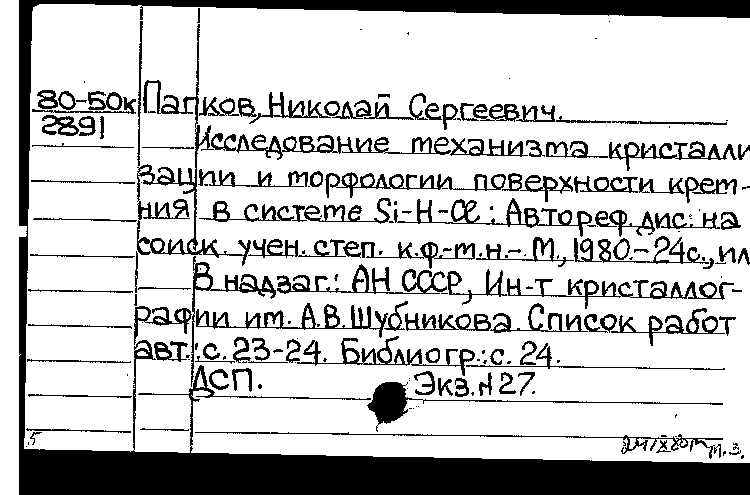 80-50к Папков, Николай Сергеевич.
2891
Исследование механизма кристалли
зации и морфологии поверхности крем-
ния в системе Si-H-Cl : Автореф. дис. на
соиск. учен. степ. к.ф-м.н.- М., 1980.- 24с., ил
В надзаг.: АН СССР, Ин-т кристаллог-
рафии им. А.В.Шубникова. Список работ
авт.: с. 23-24. Библиогр.: с. 24.
ДСП. Экз.№27.